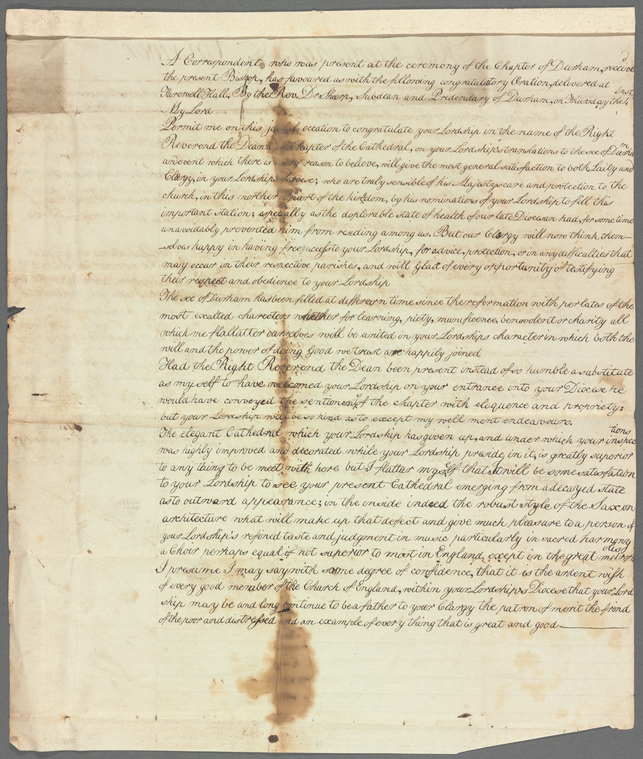 A Correspondent who was present at the ceremony of the Chapter of Durham, receive d
the present Bishop, has favoured us with the following congratulatory Oration, delivered at
Farewell Hall, By the Rev. Dr Sharp, Subdean and Predendary of Durham, on Thursday the inst
My Lord
Permit me on this occation to congratulate your Lordship in the name of the Right
Reverend the Dean & Chapter of the Cathedral, on your Lordship's translations to the see of Durham
an event which there is every reason to believe, will give the most general satisfaction to both Laity and
Clergy, in your Lordships Diocese; who are truly sensible of his Majestys care and protection to the
church, in this northern part of the kindom, by his nominations of your Lordship to fill this
important station; aspecially as the deplorable state of health of our late Diocesan had, for some time
unavoidably prevented him from reseding among us. But our Clergy will now think them-
selves happy in having free access to your Lordship, for advice, protection, or in any dafficulties that
may occur in their respective parishes, and will Glad of every opportunity of testifying
their respect and obedience to your Lordship
The see of Durham has been filled at differarn time since the reformation with perlates of the
most exalted charecters whether for learning, piety, munificence, benevolent or charity all
which me flallatter ourselves will be united in your Lordships character in which both the
will and the power of doing Good we trust are happily joined
Had the Right Reverend, the Dean been present instead of so humble a substitute
as my self to have welcomed your Lordship on your entrance into your Diocese he
would have conveyed the sentiments of the chapter with eloquence and propriety:
but your Lordship will be so kind as to except my well ment endeavours.
The elegant Cathedral which your Lordship has given up, and under which your inspec tions
was highly improved and decorated while your Lordship preside, in it, is greatly superior
to any thing to be meet with here but I flattar my self that it will be some satisfation
to your Lordship to see your present Cathedral emerging from a decayed state
as to outward appearance; in the inside indeed the robust style of the Saxon
architecture what will make up that defect and give much pleasure to a person of
your Lordship's refined taste and judgment in music particularly in sacred harmony
a Choir perhaps equal if not superior to most in England, except in the great metrop olis
I presume I may say with some degree of confidence, that it is the ardent wish
of every good member of the Church of England, within your Lordships Diocese that your Lord
ship may be and long continue to be a father to your Clargy the patron of merit the frind
of the poor and distressed and an example of every thing that is great and good